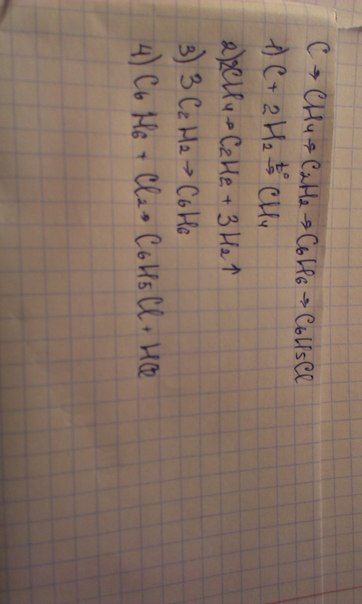 C → CH4 → C2H2 → C6H6 → C6H5Cl
1) C + 2H2 t°→ CH4
2) 2CH4 → C2H2 + 3H2↑
3) 3C2H2 → C6H6
4) C6H6 + Cl2 → C6H5Cl + HCl